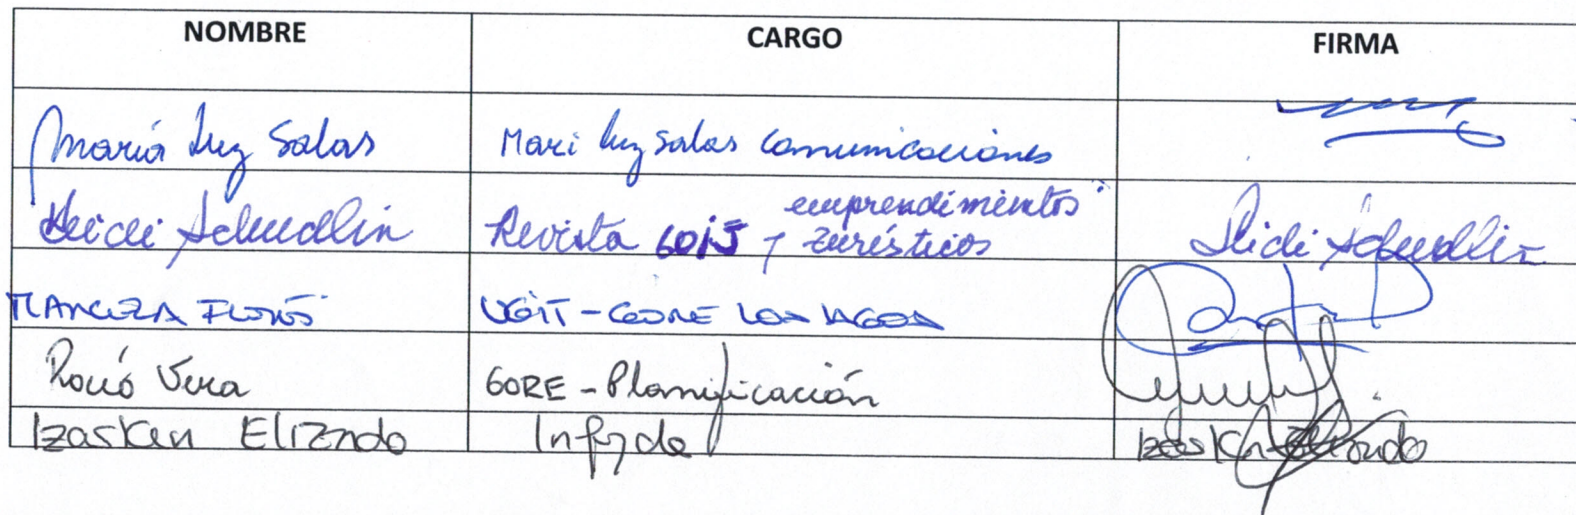 NOMBRE CARGO FIRMA
María Luz Salas Mari Luz Salas Comunicaciones
Heidi Schudlin Revista y emprendimientos turísticos Heidi Schudlin
Flores UGIT - GORE LOS LAGOS
Rocío Vera GORE - Planificación
Izaskun Elizondo Infyde Izaskun Elizondo